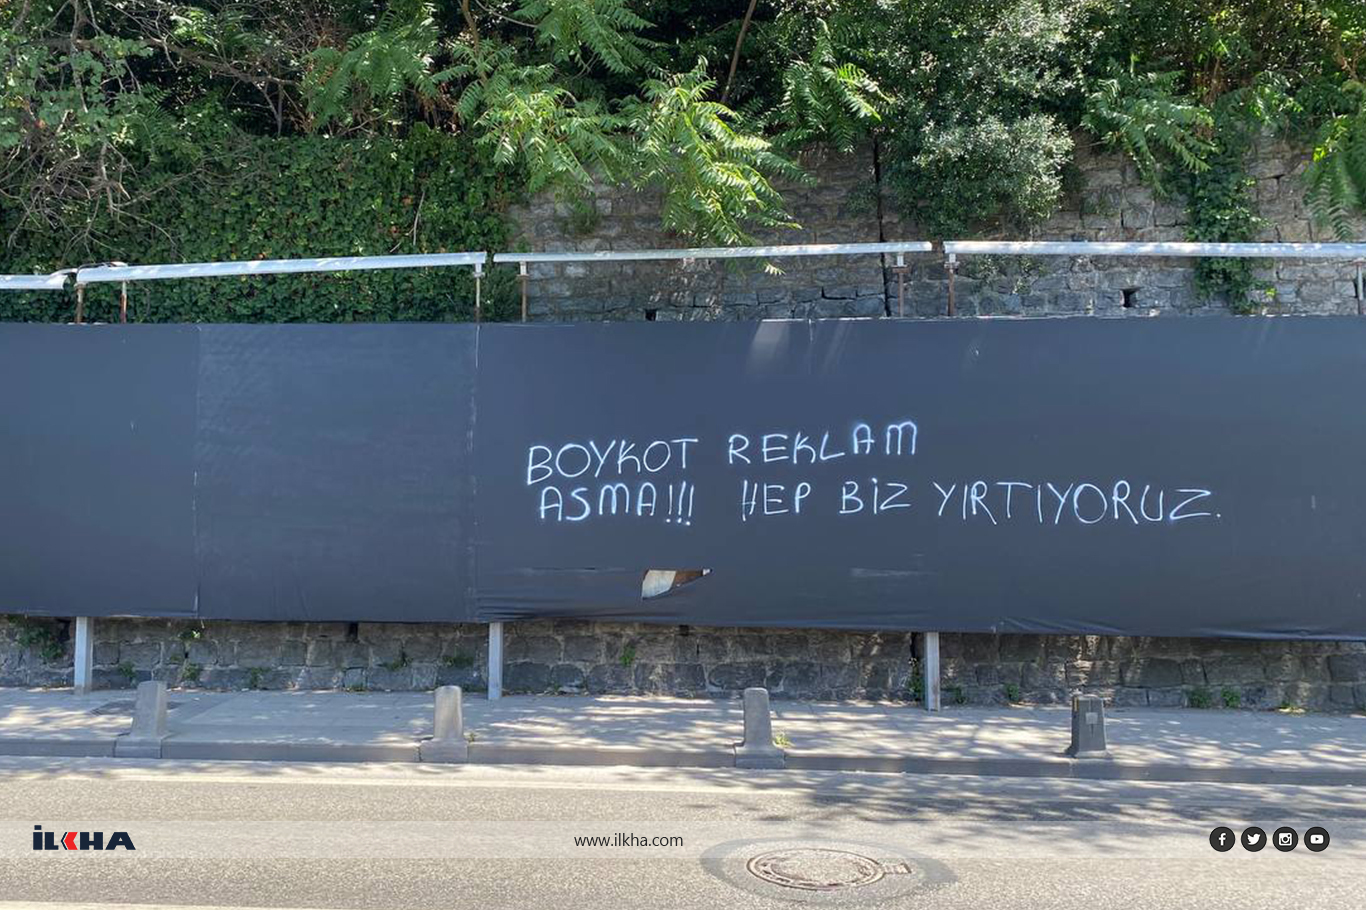 BOYKOT REKLAM
ASMA!!! HEP BİZ YIRTIYORUZ.
İLKHA
www.ilkha.com